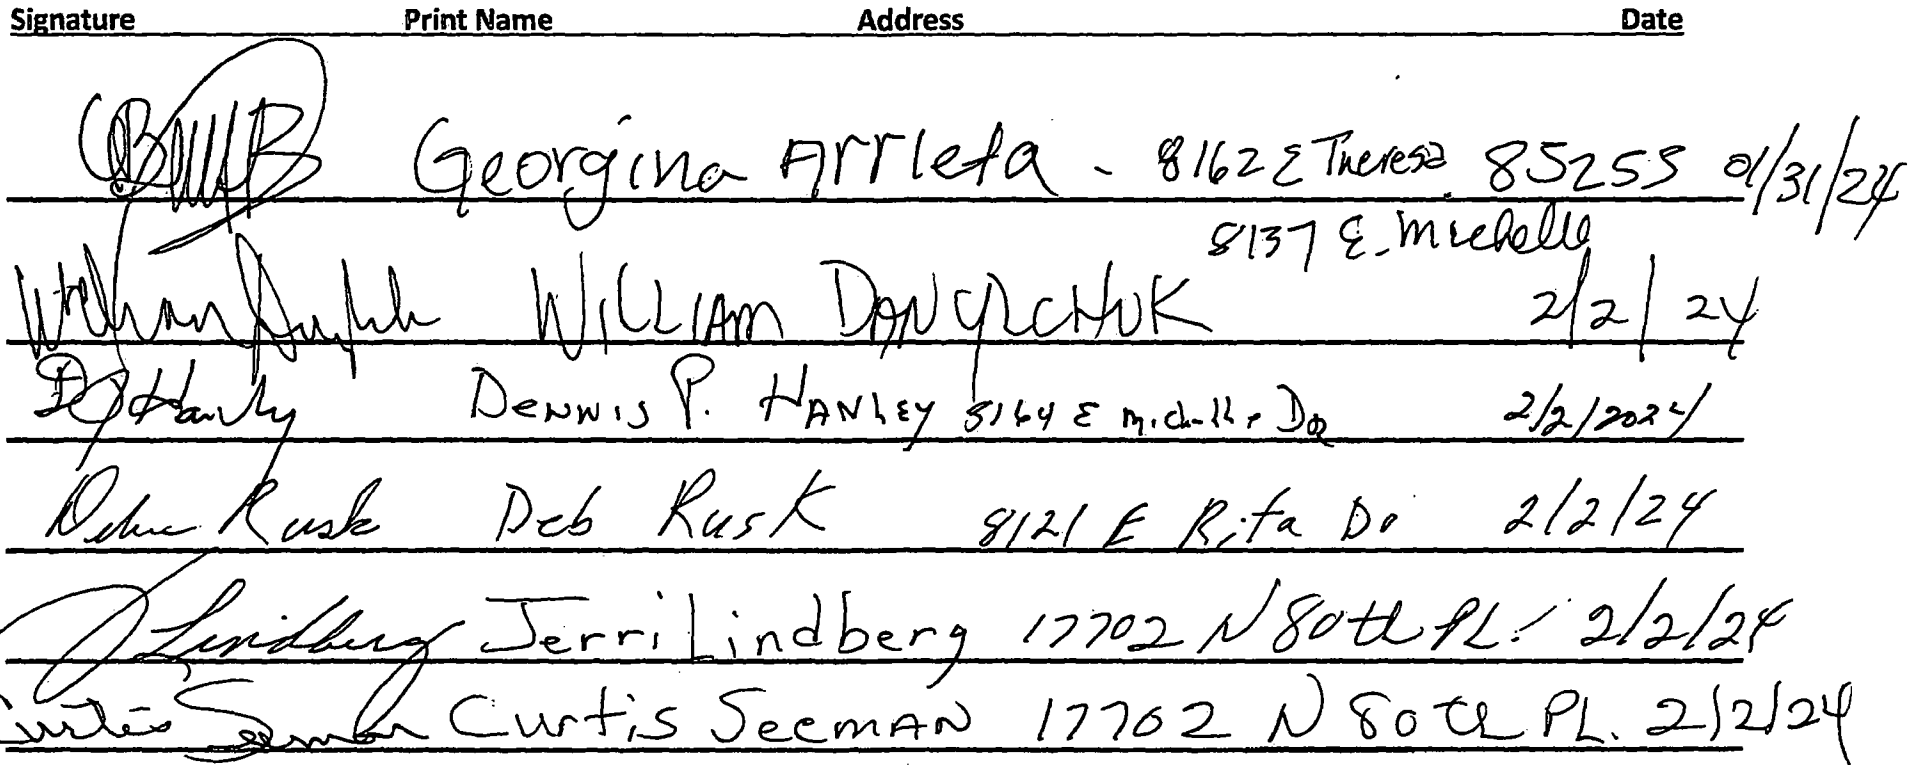 Signature Print Name Address Date
Georgina Arrieta - 8162 E Theresa 85255 01/31/24
8137 E. Michelle
William Danylchuk WILLIAM DANYLCHUK 2/2/24
D P Hanley DENNIS P. HANLEY 8164 E Michelle DR 2/2/2024
Rusk Deb Rusk 8121 E Rita Dr 2/2/24
J Lindberg Jerri Lindberg 17702 N 80th PL. 2/2/24
Curtis Seeman Curtis SeeMAN 17702 N 80th PL. 2/2/24